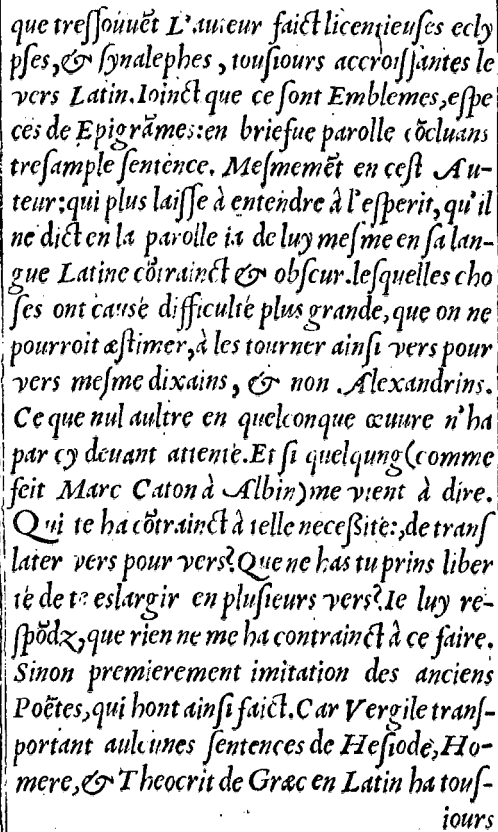 que treſſouuẽt L'auteur faict licentieuſes ecly
pſes, & ſynalephes, touſiours accroiſſantes le
vers Latin. Ioinct que ce ſont Emblemes, eſpe
ces de Epigrãmes: en briefue parolle cõcluans
treſample ſentence. Meſmemẽt en ceſt Au-
teur: qui plus laiſſe à entendre à l'eſperit, qu'il
ne dict en la parolle ia de luy meſme en ſa lan-
gue Latine cõtrainct & obſcur. leſquelles cho
ſes ont cauſé difficulté plus grande, que on ne
pourroit æſtimer, à les tourner ainſi vers pour
vers meſme dixains, & non Alexandrins.
Ce que nul aultre en quelconque œuure n'ha
par cy deuant attenté. Et ſi quelqung (comme
feit Marc Caton à Albin) me vient à dire.
Qui te ha cõtrainct à telle neceßité:, de tranſ
later vers pour vers? Que ne has tu prins liber
té de te eslargir en pluſieurs vers? Ie luy re-
ſpõdz, que rien ne me ha contrainct à ce faire.
Sinon premierement imitation des anciens
Poëtes, qui hont ainſi faict. Car Vergile tranſ-
portant aulcunes ſentences de Heſiode, Ho-
mere, & Theocrit de Græc en Latin ha touſ-
iours